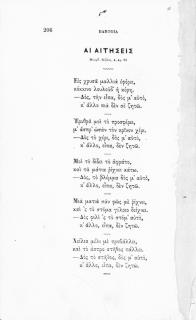 206
ΠΑΝΔΩΡΑ
ΑΙ ΑΙΤΗΣΕΙΣ
Εἰς χρυσᾶ μαλλιὰ ἐφόρει
κόκκινο λουλοῦδι ἡ κόρη.
—Δός, τὴν εἶπα, δός μ' αὐτό,
κ' ἄλλο πιὰ δὲν σὲ ζητῶ.
Ἐρυθρὰ μοὶ τὸ προσφέρει,
μ' ἄσπρ' ὡσὰν τὸν κρίνον χέρι.
—Δὸς τὸ χέρι, δός μ' αὐτό,
κ' ἄλλο, εἶπα, δὲν ζητῶ.
Μοὶ τὸ δίδει τὸ
καὶ τὰ μάτια ῥίχνει κάτω.
—Δός, τὸ βλέμμα δὸς μ' αὐτό,
κ' ἄλλο, εἶπα, δὲν ζητῶ.
Μιὰ ματιὰ σὰν φῶς μὲ ῥίχνει,
καὶ 'ς τὸ στόμα γέλοιο δείχνει.
—Δὸς φιλὶ 'ς τὸ στόμ' αὐτό,
κ' ἄλλο, εἶπα, δὲν ζητῶ.
Χείλια μέλι μὲ προβάλλει,
καὶ τὸ ἄσπρο στῆθος πάλλει.
—Δὸς τὸ στῆθος, δός μ' αὐτό,
κ' ἄλλο, εἶπα, δὲν ζητῶ.